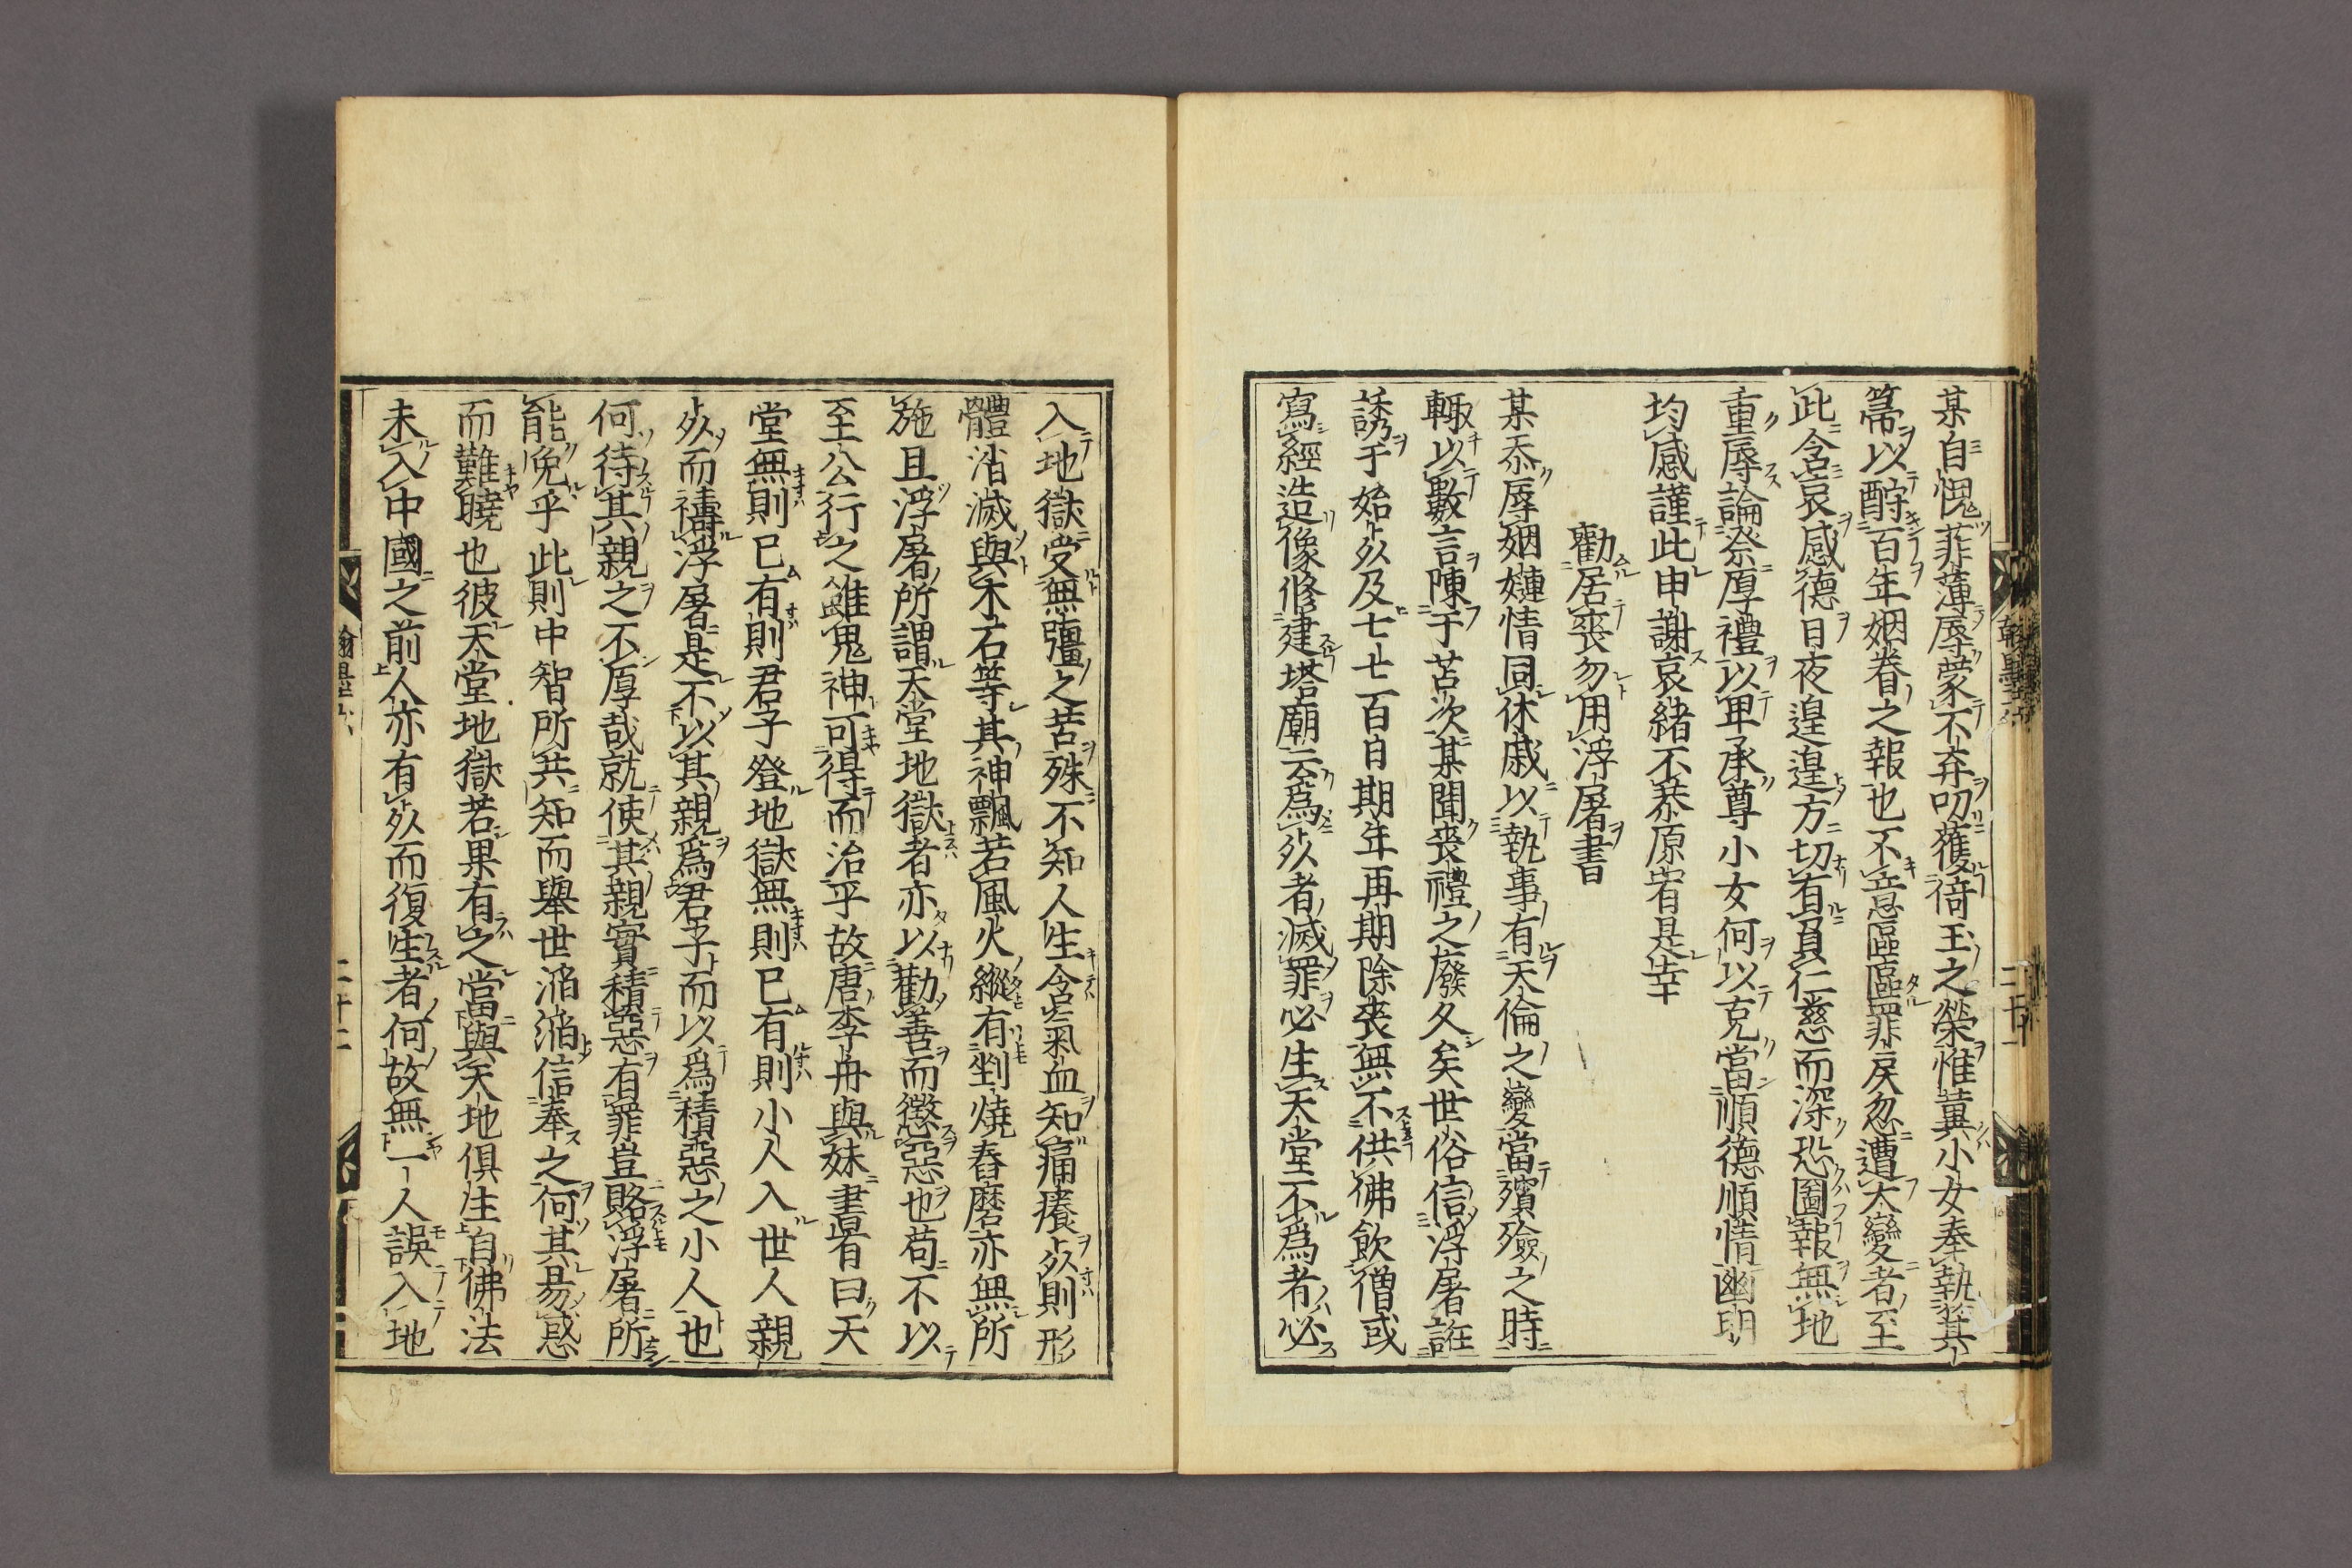 某自愧菲薄辱蒙不弃叨獲倚玉之榮惟冀小女奉執箕
箒以酧百年姻眷之報也不意區區罪戾忽遭大變者至
此含哀感德日夜遑遑方切有負仁慈而深恐圖報無地
重辱論祭厚禮以卑承尊小女何以克當順德順情幽明
均感謹此申謝哀緒不恭原宥是幸
勸居喪勿用浮屠書
某忝辱姻嫌情同休戚以執事有天倫之變當殯殮之時
輙以數言陳于苫次某聞喪禮之廢久矣世俗信浮屠誑
誘于始死及七七百日期年再期除喪無不供佛飲僧或
寫經造像修建塔廟云爲死者滅罪必生天堂不爲者必
入地獄受無彊之苦殊不知人生含氣血知痛癢死則形
體消滅與木石等其神飄若風火縱有剉燒舂磨亦無所
施且浮屠所謂天堂地獄者亦以勸善而懲惡也苟不以
至公行之雖鬼神可得而治乎故唐李舟與妹書有曰天
堂無則已有則君子登地獄無則已有則小人入世人親
死而禱浮屠是不以其親爲君子而以爲積惡之小人也
何待其親之不厚哉就使其親實積惡有罪豈賂浮屠所
能免乎此則中智所共知而舉世滔滔信奉之何其易惑
而難曉也彼天堂地獄若果有之當與天地俱生自佛法
未入中國之前人亦有死而復生者何故無一人誤入地
二十二